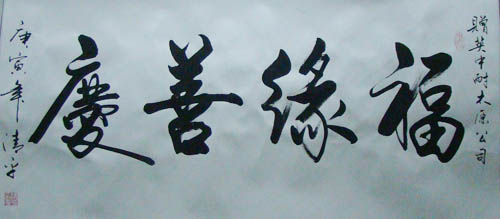 贈英中耐太原公司
福緣善慶
庚寅年 清平